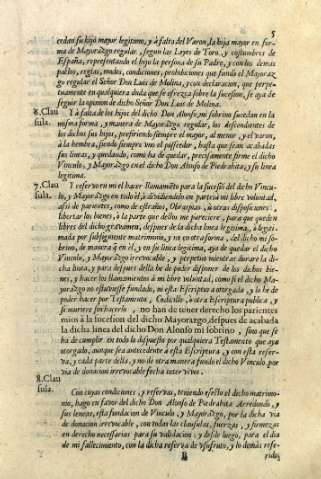 5
cedan su hijo mayor legitimo, y à falta del Varon, la hija mayor en for-
ma de Mayorazgo regular, segun las Leyes de Toro, y costumbres de
España, representando el hijo la persona de su Padre, y con las demàs
reglas, modos, condiciones, prohibiciones que funda el Mayoraz
go regular el Señor Don Luis de Molina, y con declaracion, que perpe-
tuamente en qualquiera duda que se ofrezca sobre la sucession, se aya de
seguir la opinion de dicho Señor Don Luis de Molina.
6. Clau
sula.
Y à falta de los hijos del dicho Don Alonso, mi sobrino sucedan en la
misma forma, y manera de Mayorazgo regular, los descendientes de
los dichos sus hijos, prefiriendo siempre el mayor, al menor, y el varon,
à la hembra, siendo siempre uno el posseedor, hasta que sean acabadas
sus lineas, y quedando, como ha de quedar, precisamente firme el dicho
Vinculo, y Mayorazgo en el dicho Don Alonso de Piedrabita, y su linea
legitima.
7. Clau
sula.
Y reservo en mi el hacer llamamiento para la sucession del dicho Vincu-
lo, y Mayorazgo en todo el, ò dividiendolo en partes à mi libre voluntad,
assi de parientes, como de estraños, Obras pias, ò otras disposiciones
libertar los bienes, ò la parte que dellos me pareciere, para que queden
libres del dicho gravamen, despues de la dicha linea legitima, ò legiti-
mada por subsiguiente matrimonio, y no en otra forma, del dicho mi so-
brino, de manera que en el, y en su linea legitima, aya de quedar el dicho
Vinculo, y Mayorazgo irrevocable, y perpetuo mientras durare la di-
cha linea, y para despues della he de poder disponer de los dichos bie-
nes, y hacer los llamamientos à mi libre voluntad, como si el dicho Ma-
yorazgo no estuviesse fundado, ni esta Escriptura otorgada, y lo he de
poder hacer por Testamento, Codicillo, ò otra Escriptura publica, y
si muriere sin hacerlo, no han de tener derecho los parientes
mios à la sucession del dicho Mayorazgo, despues de acabada
la dicha linea del dicho Don Alonso mi sobrino, sino que se
ha de cumplir en todo lo dispuesto por qualquiera Testamento que aya
otorgado, aunque sea antecedente à esta Escriptura, y con esta reser-
va, y cada parte della, y no de otra manera fundo el dicho Vinculo por
via de donacion irrevocable fecha inter vivos.
8. Clau
sula.
Con cuyas condiciones, y reservas, teniendo efecto el dicho matrimo-
nio, hago en favor del dicho Don Alonso de Piedrabita Arredondo, y
sus lineas, esta fundacion de Vinculo, y Mayorazgo, por la dicha via
de donacion irrevocable, con todas las clausulas, fuerzas, y firmezas
en derecho necessarias para su validacion, y desde luego, para el dia
de mi fallecimiento, con la dicha reserva de usufruto, y lo demàs refe-
B
rido,